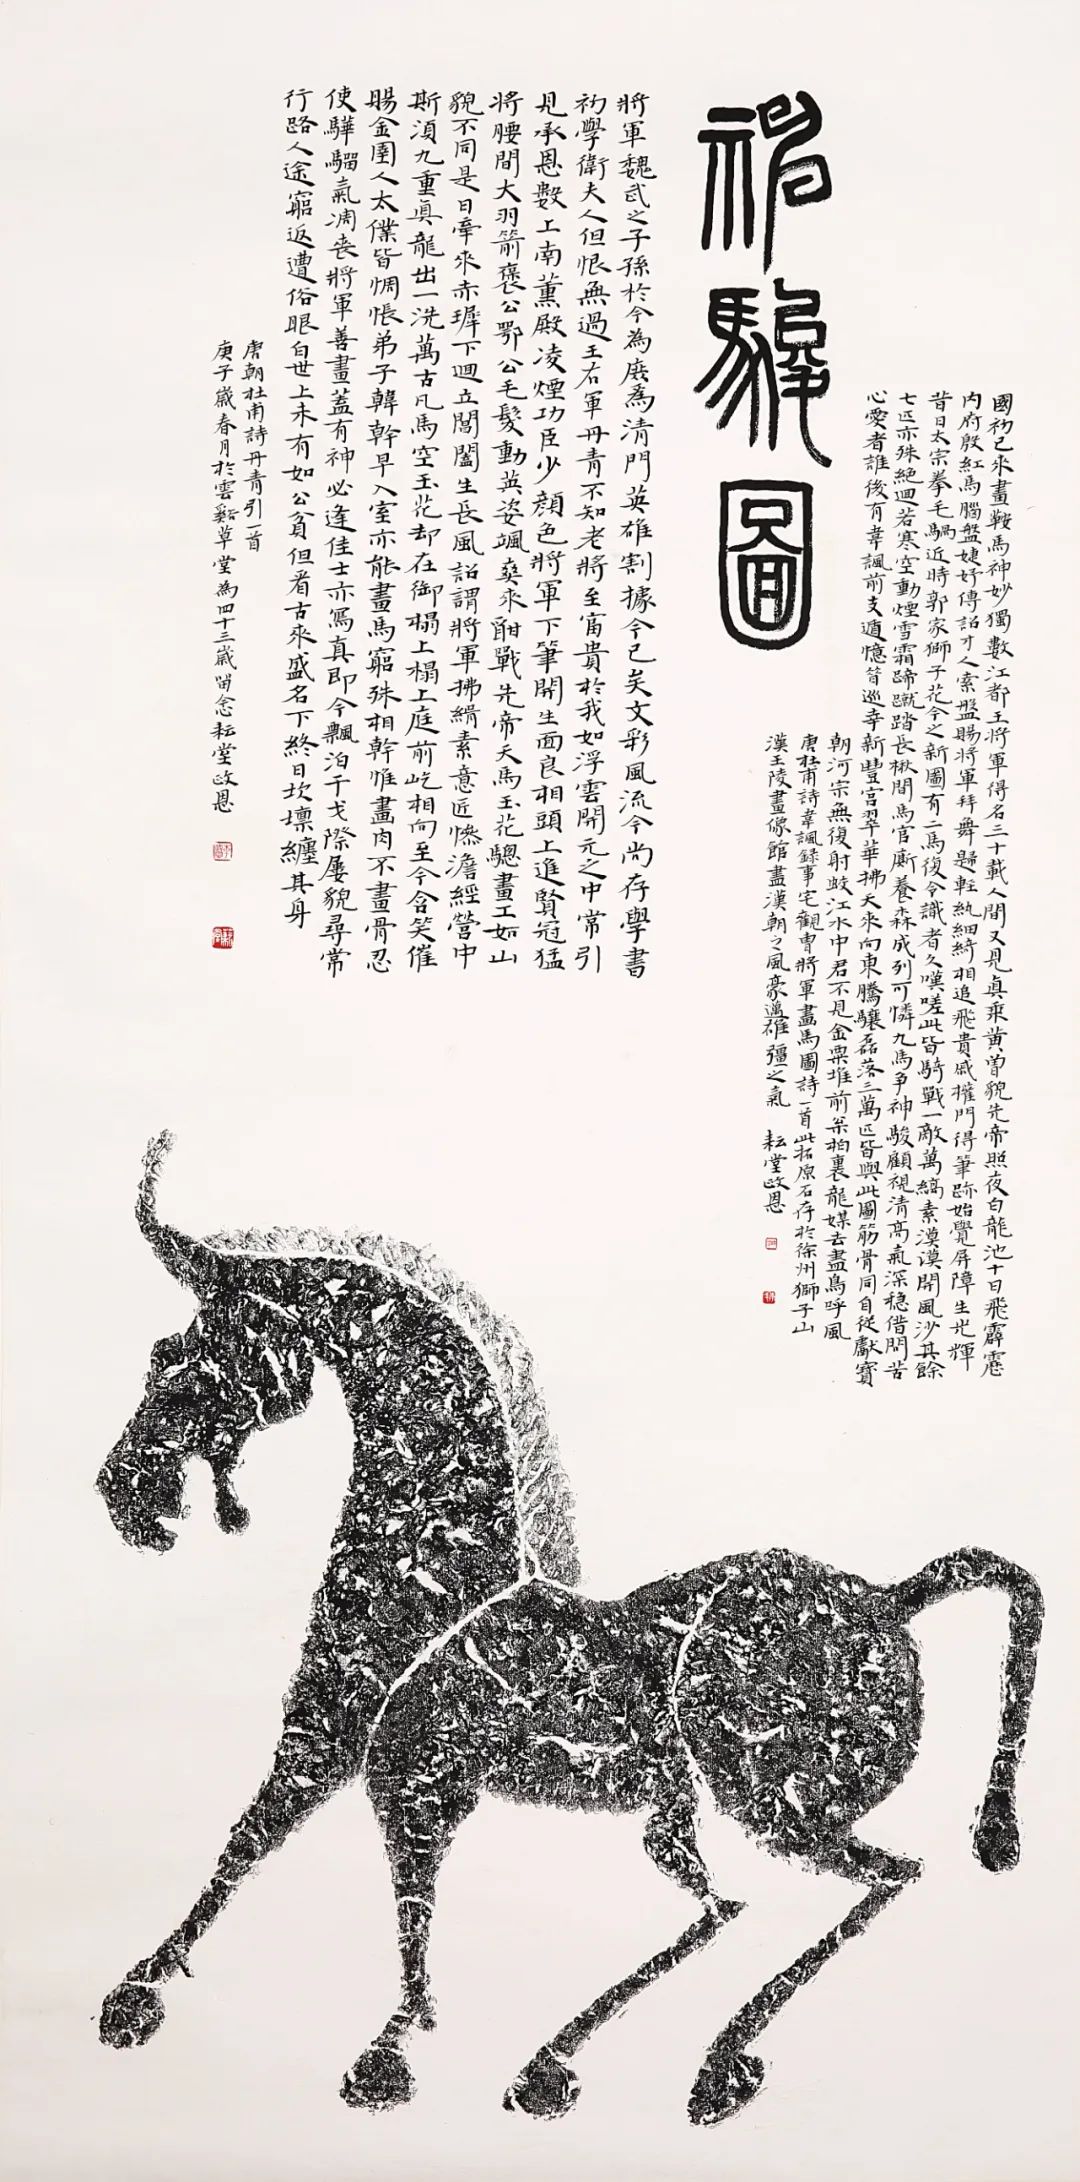 神駿圖
國初已來畫鞍馬神妙獨數江都王將軍得名三十載人間又見真乘黃曾貌先帝照夜白龍池十日飛霹靂
內府殷紅馬腦盤婕妤傳詔才人索盤賜將軍拜舞歸輕紈細綺相追飛貴戚權門得筆跡始覺屏障生光輝
昔日太宗拳毛騧近時郭家獅子花今之新圖有二馬復令識者久嘆嗟此皆騎戰一敵萬縞素漠漠開風沙其餘
七匹亦殊絕迴若寒空動煙雪霜蹄蹴踏長楸間馬官廝養森成列可憐九馬爭神駿顧視清高氣深穩借問苦
心愛者誰後有韋諷前支遁憶昔巡幸新豐宮翠華拂天來向東騰驤磊落三萬匹皆與此圖筋骨同自從獻寶
朝河宗無復射蛟江水中君不見金粟堆前松柏裏龍媒去盡鳥呼風
唐杜甫詩韋諷録事宅觀曹將軍畫馬圖詩一首此拓原石存於徐州獅子山
漢王陵畫像館盡漢朝之風豪邁雄彊之氣 耘堂政恩
將軍魏武之子孫於今為庶為清門英雄割據今已矣文彩風流今尚存學書
初學衛夫人但恨無過王右軍丹青不知老將至富貴於我如浮雲開元之中常引
見承恩數上南薰殿凌煙功臣少顏色將軍下筆開生面良相頭上進賢冠猛
將腰間大羽箭褒公鄂公毛髮動英姿颯爽來酣戰先帝天馬玉花驄畫工如山
貌不同是日牽來赤墀下迴立閶闔生長風詔謂將軍拂絹素意匠慘澹經營中
斯須九重真龍出一洗萬古凡馬空玉花却在御榻上榻上庭前屹相向至今含笑催
賜金圉人太僕皆惆悵弟子韓幹早入室亦能畫馬窮殊相幹惟畫肉不畫骨忍
使驊騮氣凋喪將軍善畫蓋有神必逢佳士亦寫真即今飄泊干戈際屢貌尋常
行路人途窮返遭俗眼白世上未有如公貧但看古來盛名下終日坎壈纏其身
唐朝杜甫詩丹青引一首
庚子歲春月於雲谿草堂為四十三歲留念耘堂政恩